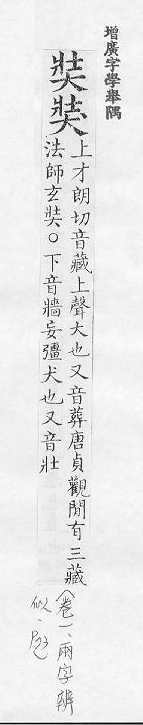 增廣字學舉隅
奘
上才朗切音藏上聲大也又音葬唐貞觀閒有三藏
法師玄奘○下音牆妄彊犬也又音壯
〈卷一、兩字辨
似、